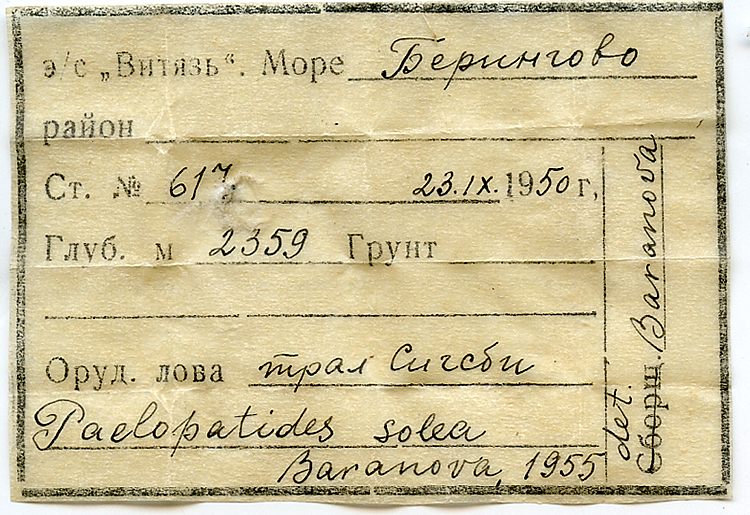 э/с „Витязь“. Море Берингово
район
Ст. № 617 23.IX.1950 г,
Глуб. м 2359 Грунт
Оруд. лова трал Сигсби
Paelopatides solea
Baranova, 1955
det.
Сборщ. Baranova